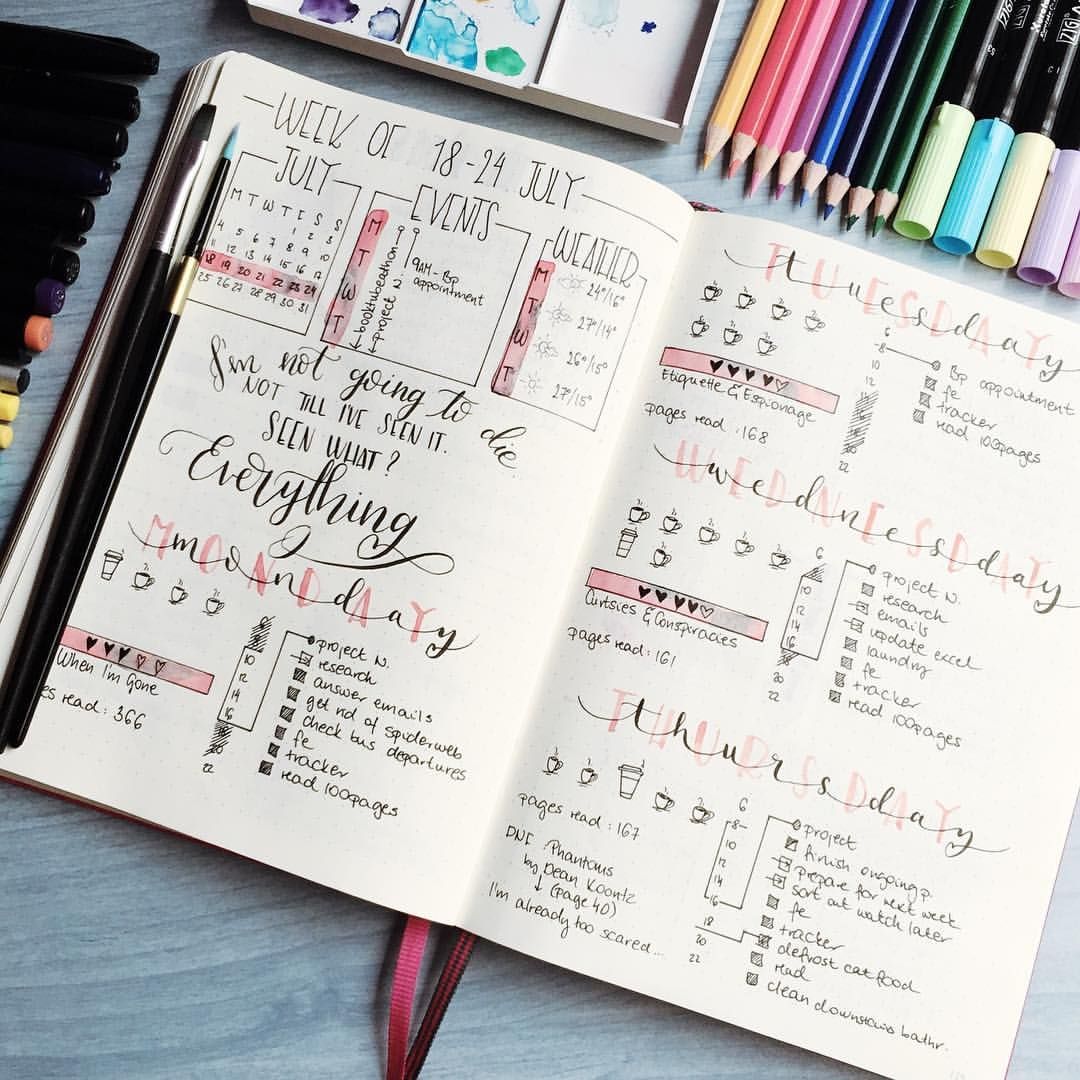 WEEK OF 18-24 JULY
JULY
M T W T F S S
1 2 3
4 5 6 7 8 9 10
11 12 13 14 15 16 17
18 19 20 21 22 23 24
25 26 27 28 29 30 31
EVENTS
M
T
W
T
booktubeathon
project 2
9AM - Bp
appointment
WEATHER
M 24°/16°
T 27°/14°
W 26°/15°
T 27°/15°
I'm not going to die
NOT TILL I'VE SEEN IT.
SEEN WHAT?
Everything
MONDAY
monday
When I'm Gone
es read: 366
10
12
14
16
20
22
project N.
research
answer emails
get rid of spiderweb
check bus departures
fe
tracker
read 100pages
TUESDAY
tuesday
Etiquette & Espionage
pages read : 168
6
8
10
12
20
22
Bp appointment
fe
tracker
read 100pages
WEDNESDAY
wednesday
Curtsies & Conspiracies
pages read: 161
6
10
12
14
16
20
22
project N.
research
emails
update excel
laundry
fe
tracker
read 100pages
THURSDAY
thursday
pages read : 167
DNF Phantoms
by Dean Koontz
↓ (page 40)
I'm already too scared...
6
8
10
12
14
16
18
20
22
project
finish ongoing p.
prepare for next week
sort out watch later
fe
tracker
defrost cat food
read
clean downstairs bathr.
ZIG